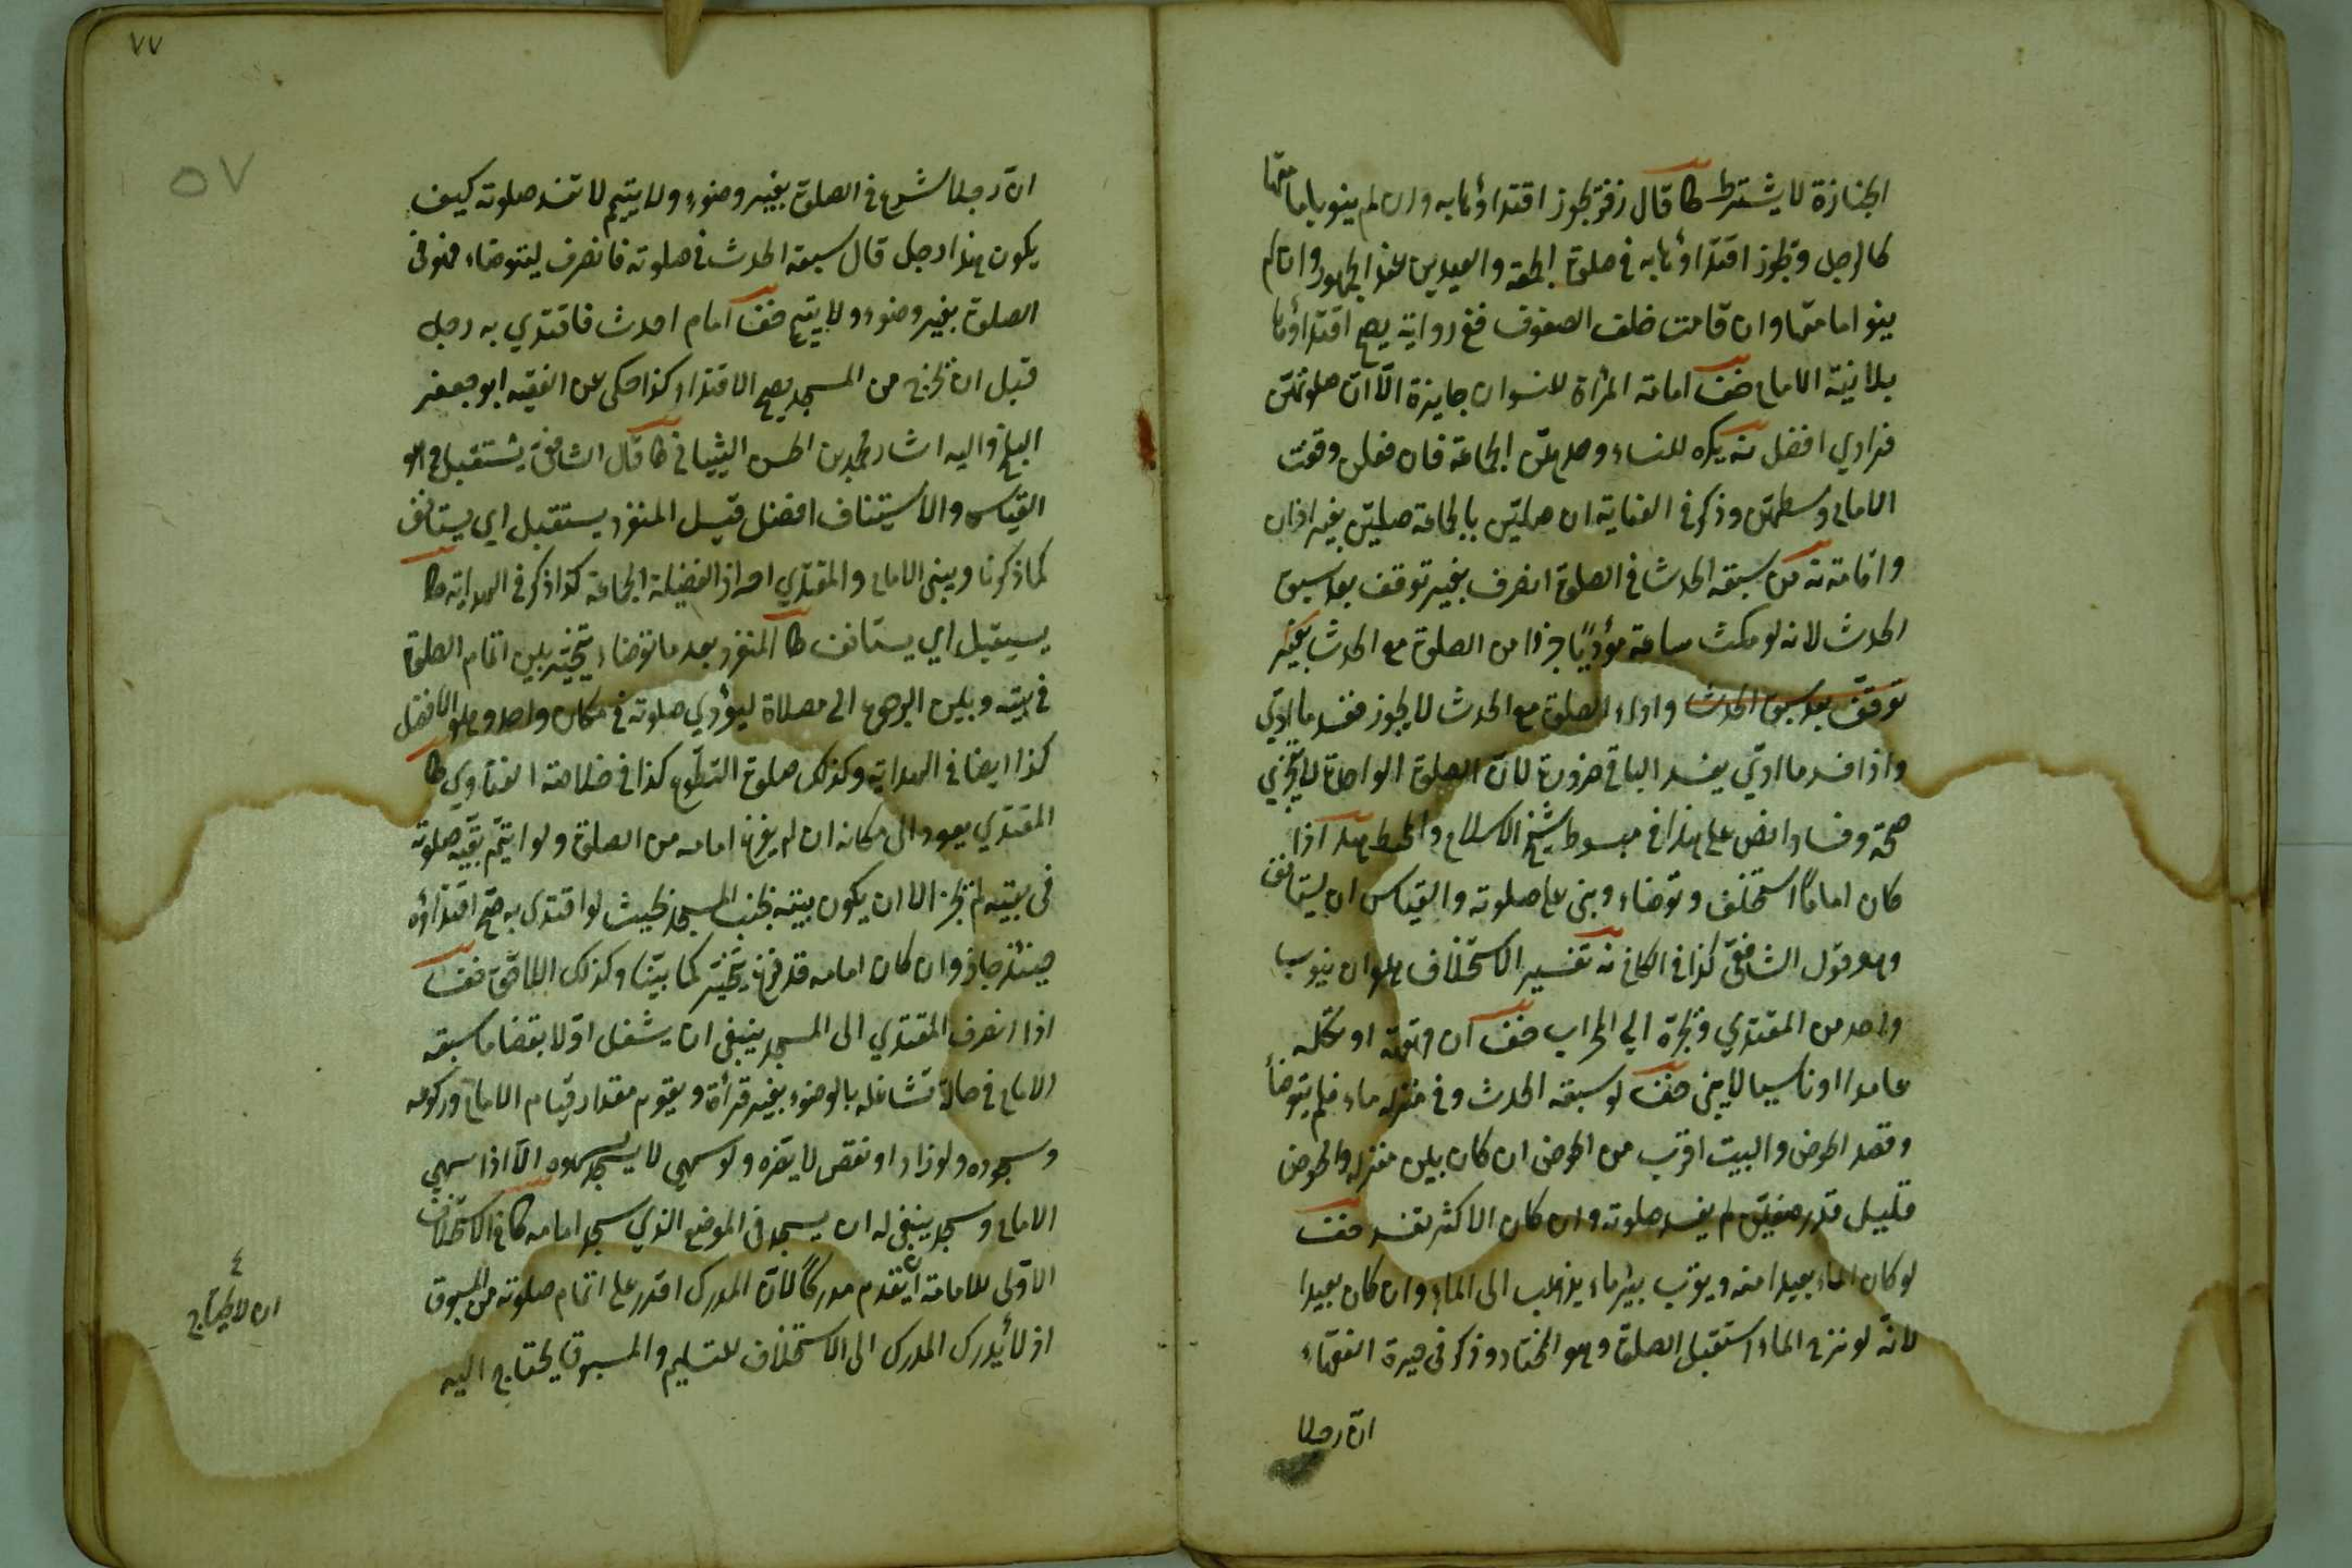 الجنازة لا يشترط كا قال زفر يجوز اقتداؤها به وان لم ينو بامامتها
كالرجل ويجوز اقتداؤها به في صلوة الجمعة والعيدين عند الجمهور وان لم
ينو امامتها وان قامت خلف الصفوف ففي رواية يصح اقتداؤها
بلا نية الامام خف امامة المرأة للنسوان جايزة الا ان صلوتهن
فرادي افضل نه يكره للنساء وحدهن الجماعة فان فعلن وقفت
الامام وسطهن وذكر في الغاية ان صلين بالجماعة صلين بغير اذان
واقامة نه من سبقه الحدث في الصلوة انصرف بغير توقف بعد سبق
الحدث لانه لو مكث ساعة مؤديا جزءا من الصلوة مع الحدث بغير
توقف بعد سبق الحدث واداء الصلوة مع الحدث لا يجوز ففسد ما ادي
واذا فسد ما ادي يفسد الباقي ضرورة لان الصلوة الواحدة لا يتجزي
صحة وفسادا نص على هذا في مبسوط شيخ الاسلام والمحيط هد اذا
كان اماما استخلف وتوضاء وبني على صلوته والقياس ان يستانف
وهو قول الشافعي كذا في الكافي نه تفسير الاستخلاف هو ان ينوب
واحد من المقتدي ويجره الي المحراب خف ان قهقه او تكلم
عامدا او ناسيا لا يبني خف لو سبقه الحدث وفي منزله ماء فلم يتوضأ
وقصد الحوض والبيت اقرب من الحوض ان كان بين منزله والحوض
قليل قدر صفين لم يفسد صلوته وان كان الاكثر تفسد خف
لو كان الماء بعيدا منه وبقرب بئر ماء يذهب الى الماء وان كان بعيدا
لانه لو نزح الماء استقبل الصلوة وهو المختار وذكر في حيرة الفقهاء
ان رجلا
٧٧
٥٧
ان رجلا شرع في الصلوة بغير وضوء ولا يتيم لا تفسد صلوته كيف
يكون هذا رجل قال سبقه الحدث في صلوته فانصرف ليتوضاء فهو في
الصلوة بغير وضوء ولا يتيم خف امام احدث فاقتدي به رجل
قبل ان يخرج من المسجد يصح الاقتداء كذا حكى عن الفقيه ابو جعفر
البلخ واليه اشار محمد بن الحسن الشيباني كا قال الشافعي يستقبل وهو
القياس والاستيناف افضل قيل المنفرد يستقبل اي يستانف
كما ذكرنا ويبني الامام والمقتدي احرازا لفضيلة الجماعة كذا ذكر في الهداية كا
يستقبل اي يستانف كا المنفرد بعد ما توضاء يتخير بين اتمام الصلوة
في بيته وبين الرجوع الى مصلاه ليؤدي صلوته في مكان واحد وهو الافضل
كذا ايضا في الهداية وكذلك صلوة التطوع كذا في خلاصة الفتاوي كا
المقتدي يعود الى مكانه ان لم يفرغ امامه من الصلوة ولو ايتم بقية صلوته
في بيته لم يجز الا ان يكون بيته بجنب المسجد بحيث لو اقتدى به صح اقتداؤه
حينئذ جاز وان كان امامه قد فرغ يتخير كما بينا وكذلك اللاحق خف
اذا انصرف المقتدي الى المسجد ينبغي ان يشغل اولا بقضا ما سبقه
الامام في حالة تشاغله بالوضوء بغير قرأة ويقوم مقدار قيام الامام وركوعه
وسجوده ولو زاد او نقص لا يضره ولو سهى لا يسجد لسهوه الا اذا سهى
الامام وسجد ينبغي له ان يسجد في الموضع الذي سجد امامه كا في الاستخلاف
الاولى للامامة ان يقدم مدركا لان المدرك اقدر على اتمام صلوته من المسبوق
اذ لا يدرك المدرك الى الاستخلاف للتسليم والمسبوق يحتاج اليه
ان لا يحتاج